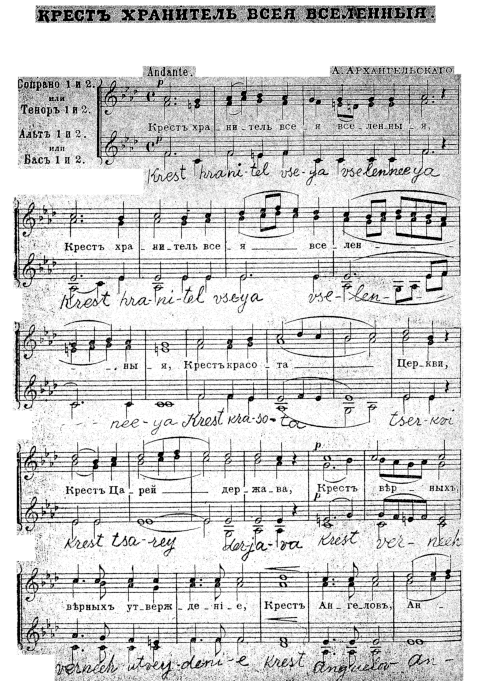 КРЕСТЪ ХРАНИТЕЛЬ ВСЕЯ ВСЕЛЕННЫЯ.
Andante.
А. АРХАНГЕЛЬСКАГО
Сопрано 1 и 2.
или
Теноръ 1 и 2.
Альтъ 1 и 2.
или
Басъ 1 и 2.
p
Крестъ хра_ни_тель все_я все_лен_ны_я,
Krest hrani-tel vse-ya vselenneeya
Крестъ хра_ни_тель все_я все_лен_
Krest hra-ni-tel vseya vse-len-
ны_я, Крестъ красо_та Церкви,
nee-ya Krest kra-so-ta tser-kvi
Крестъ Ца_рей дер_жа_ва, p Крестъ вѣр_ныхъ,
p
Krest tsa-rey derja-va Krest ver-neeh
вѣрныхъ ут_верж_де_ніе, Крестъ Ан_ге_ловъ, Ан_
verneeh utverj-deni-e Krest anguelov an-